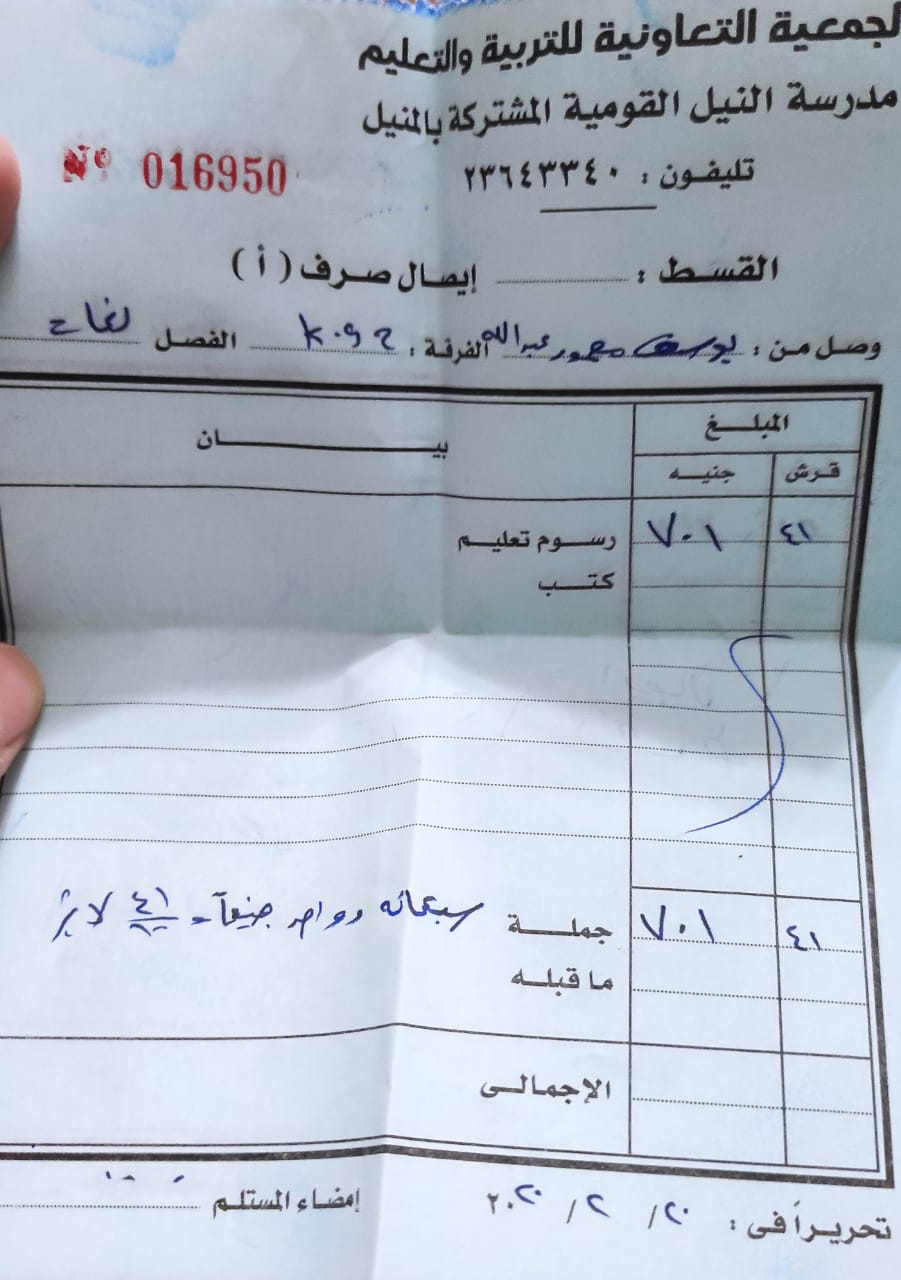 لجمعية التعاونية للتربية والتعليم
مدرسة النيل القومية المشتركة بالمنيل
تليفون : ٢٣٦٤٣٣٤٠
Nº 016950
القسط : إيصال صرف ( أ )
وصل من : يوسف محمود عبدالله الفرقة : K.G 2 الفصل تفاح
المبلغ
بيان
قرش جنيه
٤١ ٧٠١ رسوم تعليم
كتب
٤١ ٧٠١ جملة سبعمائه وواحد جنيهاً ٤١/١٠٠ لا غير
ما قبله
الإجمالى
تحريراً فى : ٢٠ / ٢ / ٢٠٢٠ إمضاء المستلم